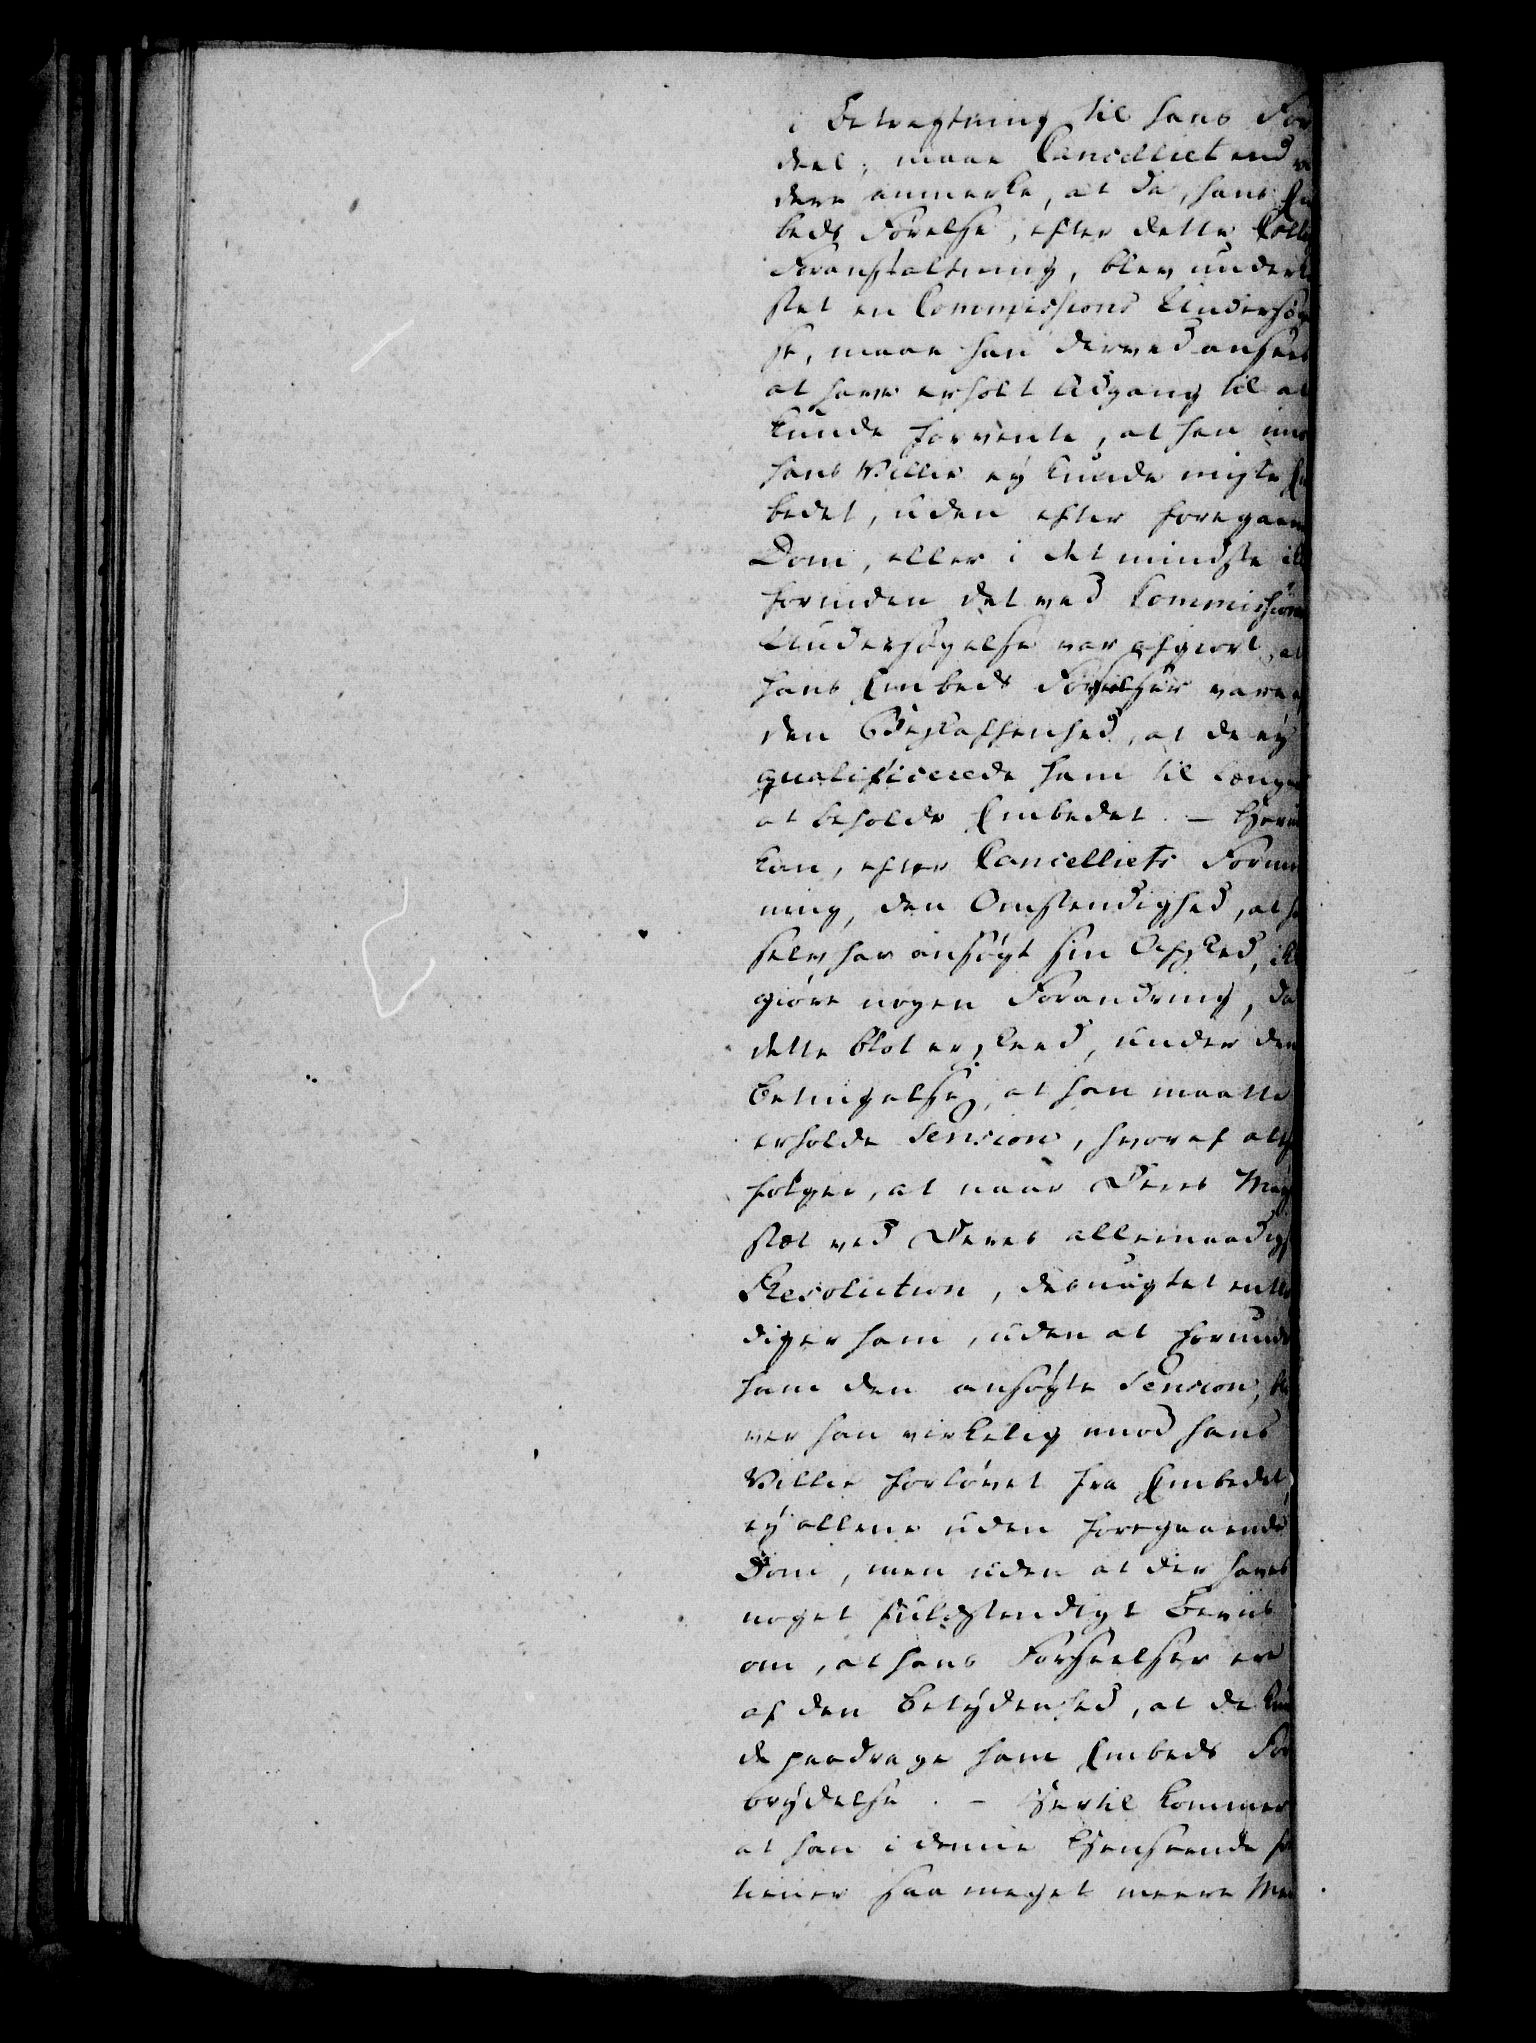 i Betragtning til hans For
deel, maae Cancelliet end vi
dere anmerke, at da, hans Em
beds Førelse, efter dette Colle
Foranstaltning, blev under
stet en Commissions Undersøge
se, maae han derved ansees
at have erholt Adgang til at
kunde forvente, at han imo
hans Villie ey kunde miste Em
bedet, uden efter foregaaen
Dom, eller i det mindste ik
forinden det ved Commissions
Undersøgelse var afgiort, at
hans Embeds Forseelser vare
den Beskaffenhed, at de ey
qualificerede ham til længer
at beholde Embedet. – Heru
kan, efter Cancelliets Forme
ning, den Omstendighed, at ha
selv har ansøgt sin Afsked, ik
giøre nogen Forandring, da
dette blot er skeed, under den
Betingelse, at han maatte
erholde Pension, hvoraf alts
følger, at naar Deres May
stæt ved Deres allernaadigs
Resolution, desuagtet entle
diger ham, uden at forunde
ham den ansøgte Pension, bli
ver han virkelig imod hans
Villie forløvet fra Embedet,
ey allene uden foregaaende
Dom, men uden at der haves
noget fuldstendigt Beviis
om, at hans Forseelser ere
af den Betydenhed, at de kun
de paadrage ham Embeds For
brydelse. – Hertil kommer
at han i denne Henseende for
tiener saa meget meere Med